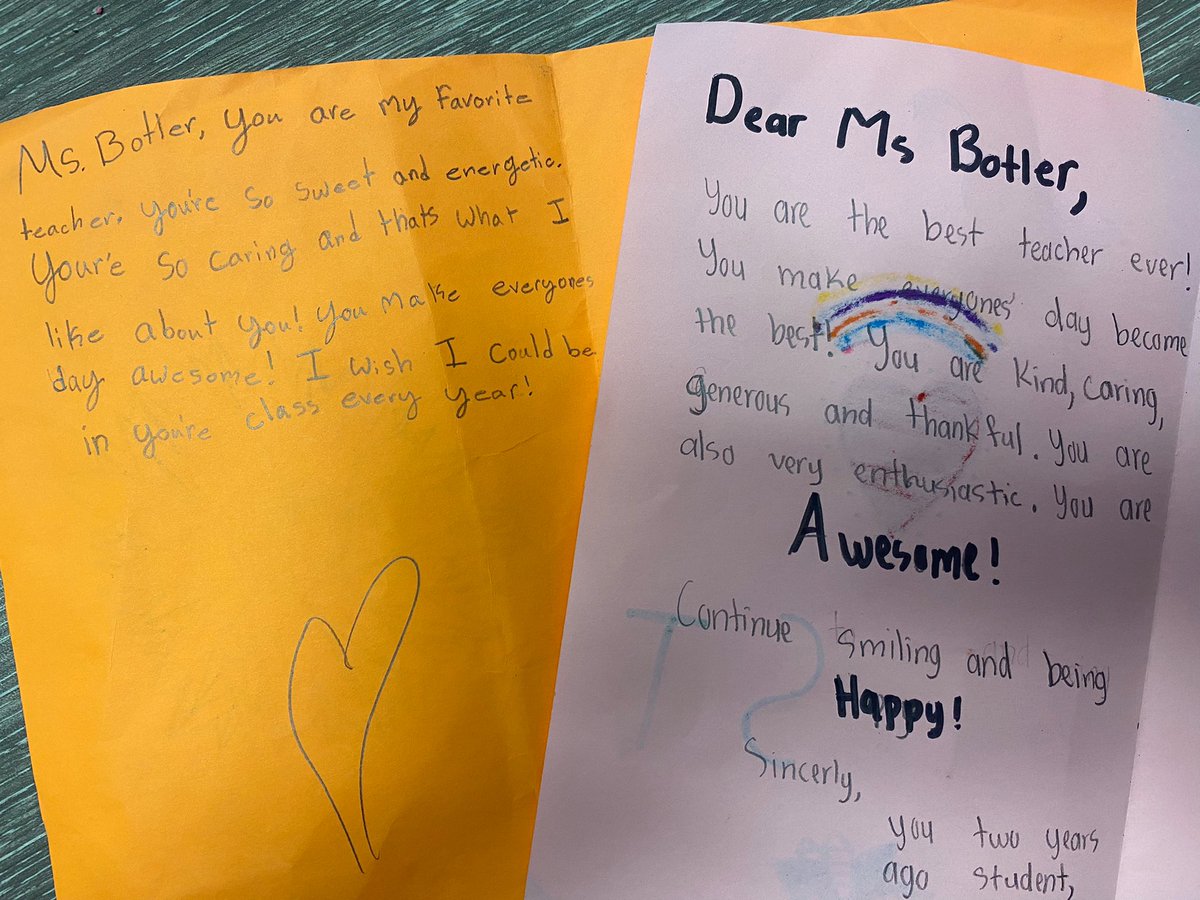 Ms. Botler, you are my favorite
teacher. you're so sweet and energetic.
Your'e so caring and thats what I
like about you! you make everyones
day awesome! I wish I could be
in you're class every year!
Dear Ms Botler,
You are the best teacher ever!
You make everyones' day become
the best! You are kind, caring,
generous and thankful. You are
also very enthusiastic. You are
Awesome!
Continue smiling and being
Happy!
Sincerly,
you two years
ago student,